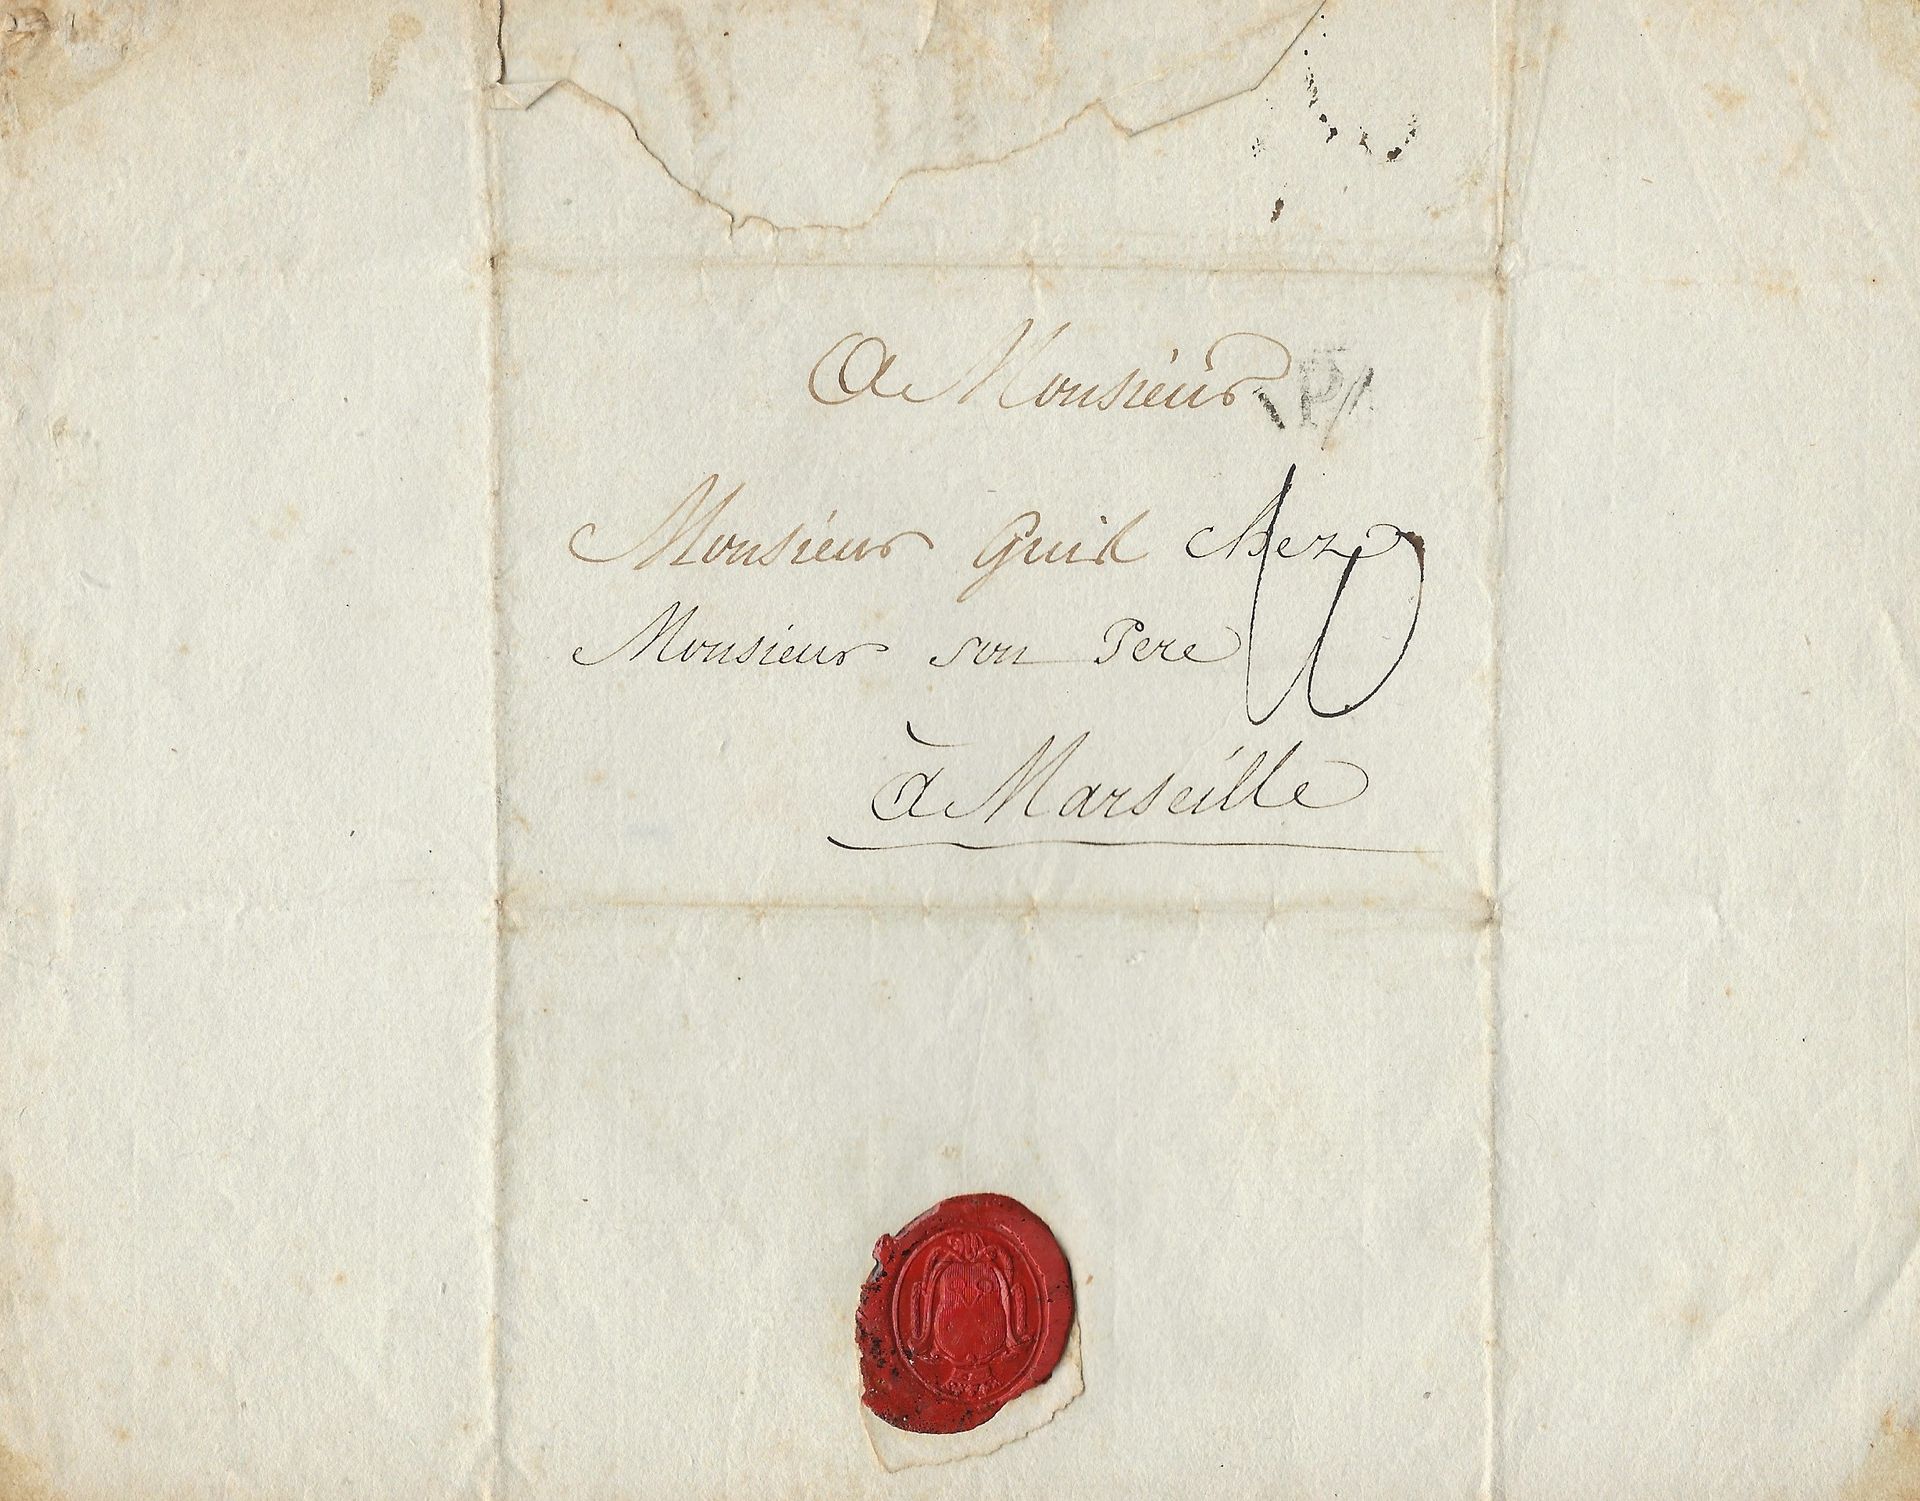 A Monsieur
P
Monsieur Guil chez
10
Monsieur son Pere
à Marseille